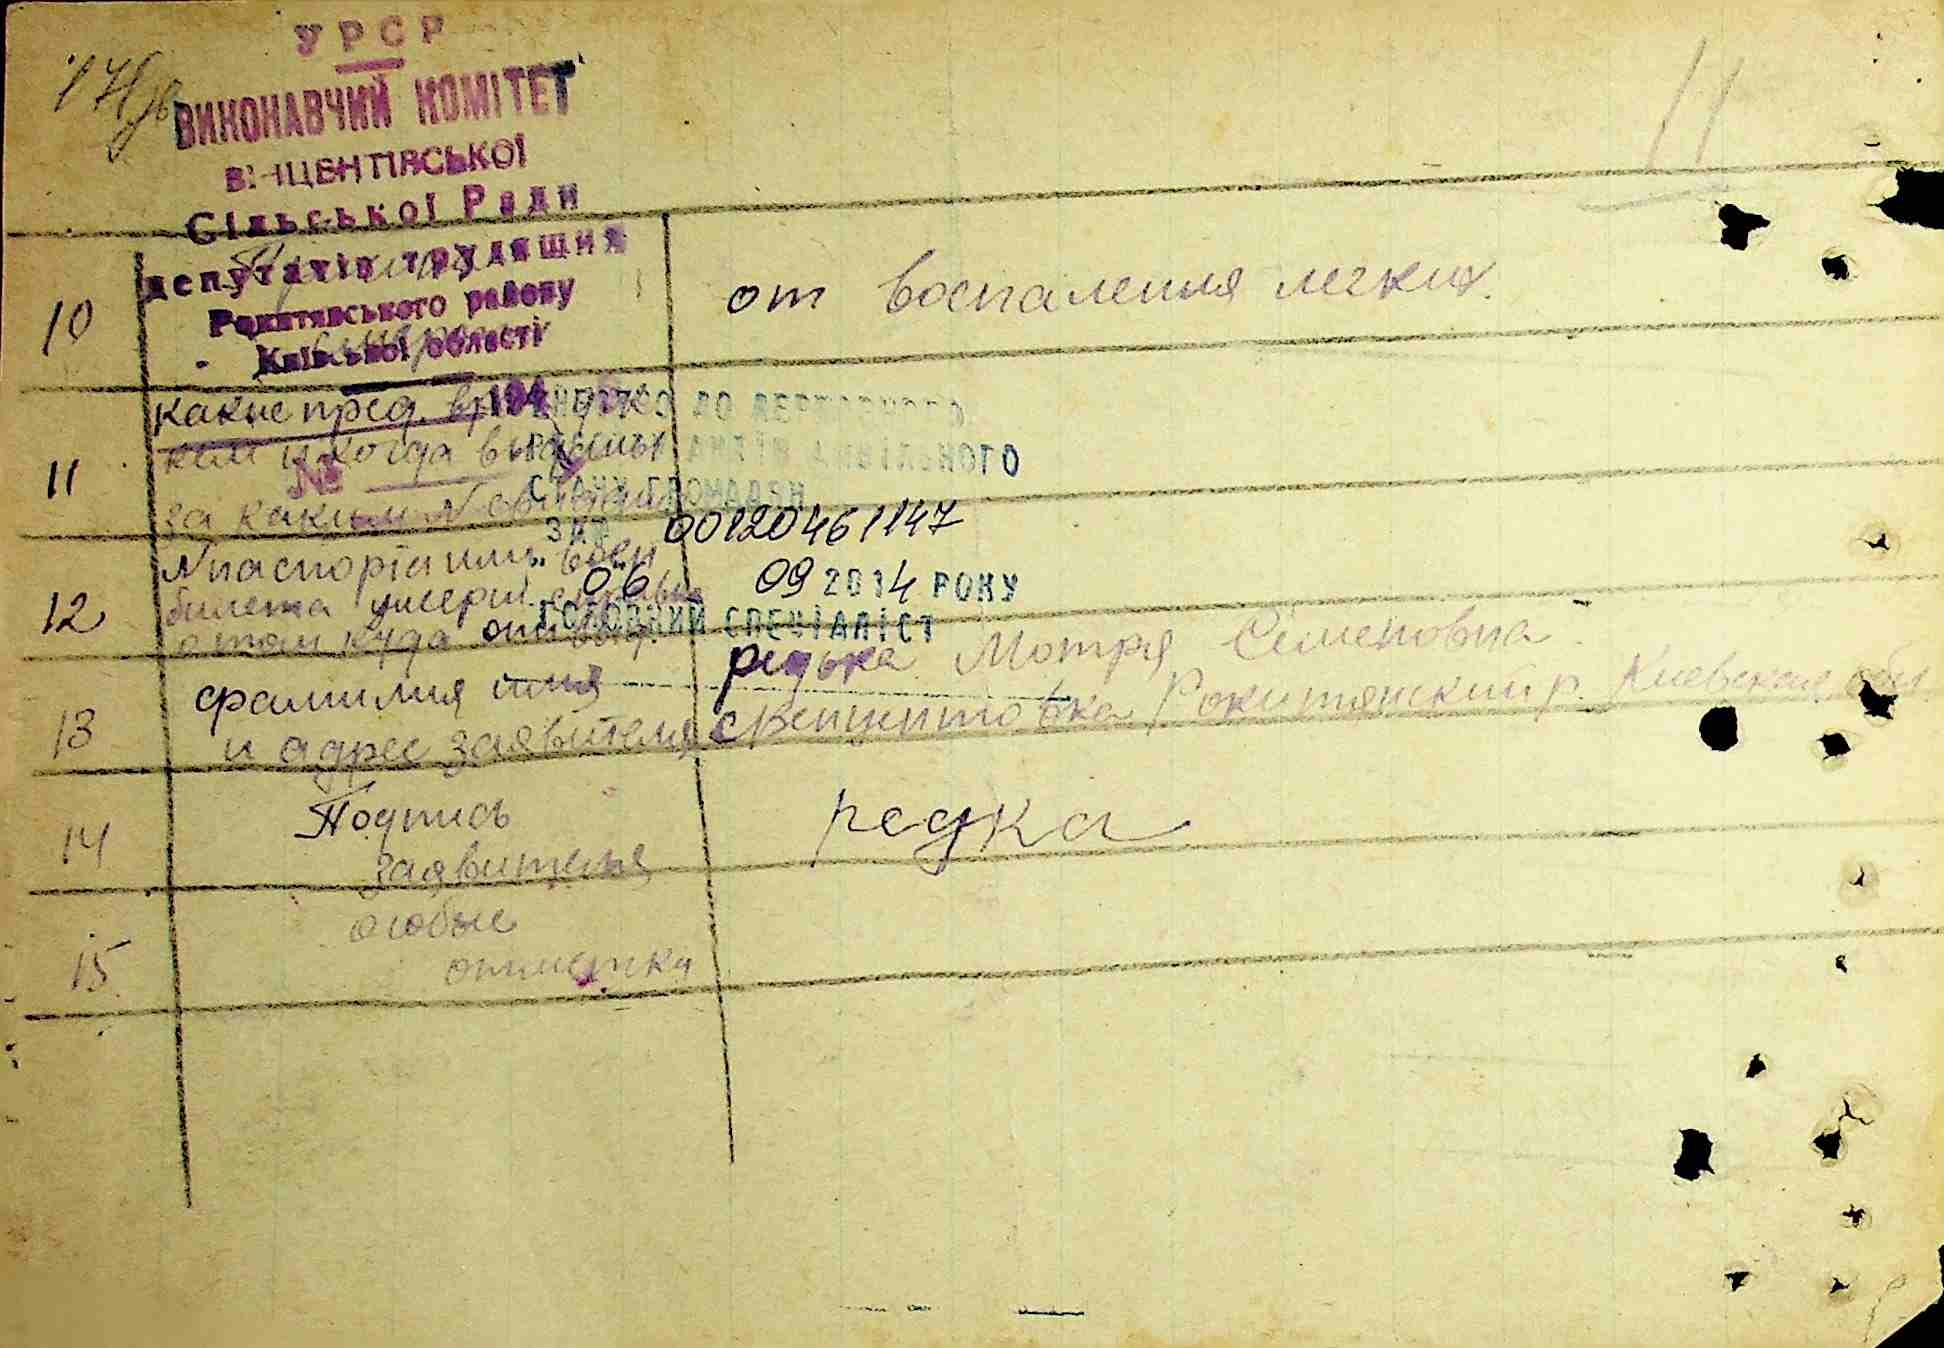 УРСР
ВИКОНАВЧИЙ КОМІТЕТ
ВІНЦЕНТІВСЬКОЇ
Сільської Ради
депутатів трудящих
Рокитянського району
Київської області
194
№
11
10
от воспаления легких.
11
какие пред.
кем и когда выданы
за каким N
ВНЕСЕНО ДО ДЕРЖАВНОГО
РЕЄСТРУ АКТІВ ЦИВІЛЬНОГО
СТАНУ ГРОМАДЯН
ЗА № 00120461147
06 09 2014 РОКУ
ГОЛОВНИЙ СПЕЦІАЛІСТ
12
N паспорта или воен
билета умерш.
о том куда
13
фамилия имя
и адрес заявителя
редька Мотря Семеновна
Рокитянский р. Киевская обл
14
Подпись
заявителя
редка
15
особые
отметки